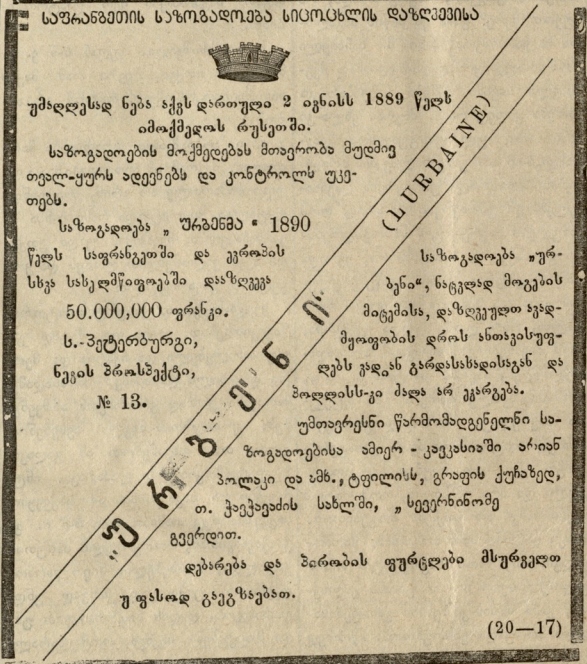 საფრანგეთის საზოგადოება სიცოცხლის დაზღვევისა
უმაღლესად ნება აქვს დართული 2 ივნისს 1889 წელს
იმოქმედოს რუსეთში.
საზოგადოების მოქმედებას მთავრობა მუდმივ
თვალ-ყურს ადევნებს და კონტროლს უკე-
თებს.
საზოგადოება „ ურბენმა “ 1890
წელს საფრანგეთში და ევროპის
სხვა სახელმწიფოებში დააზღვევა
50.000,000 ფრანკი.
ს.-პეტერბურგი,
ნევის პროსპექტი,
№ 13.
„ურბენი“
(L'URBAINE)
საზოგადოება „ურ-
ბენი“, ნაცვლად მოგების
მიცემისა, დაზღვეულთ ავად-
მყოფობის დროს ანთავისუფ-
ლებს ვადიან გარდასახადისაგან და
პოლლისს-კი ძალა არ ეკარგება.
უმთავრესნი წარმომადგენელნი სა-
ზოგადოებისა ამიერ-კავკასიაში არიან
პოლაკი და ამხ., ტფილისს, გრაფის ქუჩაზედ,
თ. ჭავჭავაძის სახლში, „ სევერნინომე
გვერდით.
დებარება და პირობის ფურცლები მსურველთ
უფასოდ გაეგზავბათ.
(20—17)